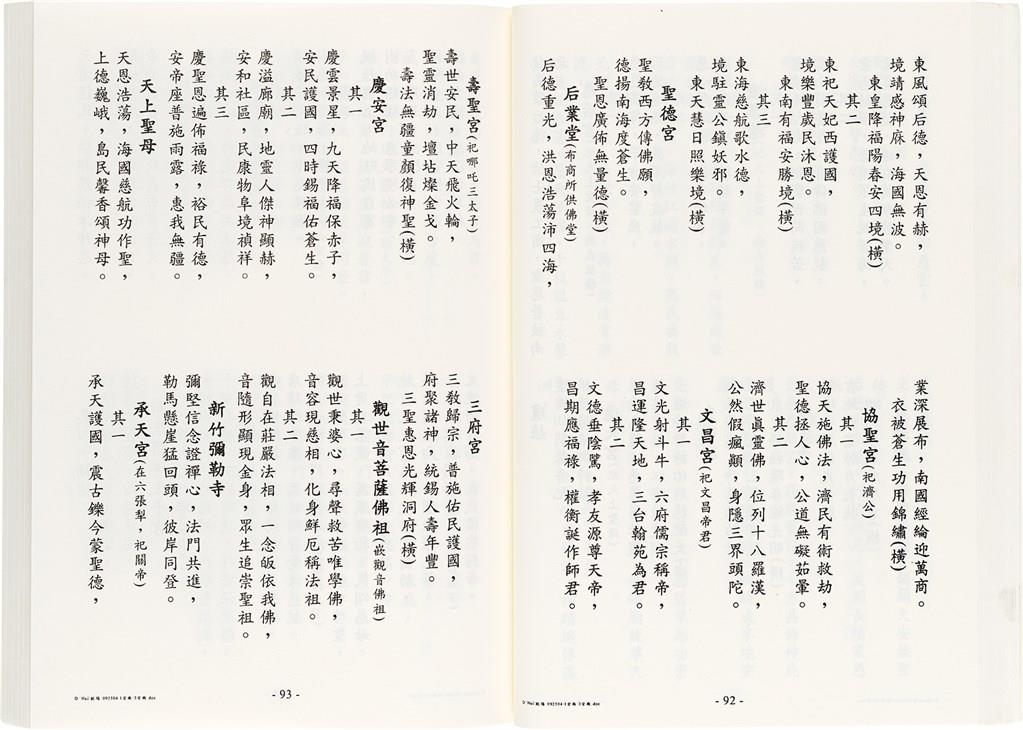 東風頌后德，天恩有赫，
境靖感神庥，海國無波。
東皇降福陽春安四境(橫)
其二
東祀天妃西護國，
境樂豐歲民沐恩。
東南有福安勝境(橫)
其三
東海慈航歌水德，
境駐靈公鎭妖邪。
東天慧日照樂境(橫)
聖德宮
聖敎西方傳佛願，
德揚南海度蒼生。
聖恩廣佈無量德(橫)
后業堂(布商所供佛堂)
后德重光，洪恩浩蕩沛四海，
業深展布，南國經綸迎萬商。
衣被蒼生功用錦繡(橫)
協聖宮(祀濟公)
其一
協天施佛法，濟民有術救劫，
聖德拯人心，公道無礙茹葷。
其二
濟世眞靈佛，位列十八羅漢，
公然假瘋顚，身隱三界頭陀。
文昌宮(祀文昌帝君)
其一
文光射斗牛，六府儒宗稱帝，
昌運隆天地，三台翰苑為君。
其二
文德垂陰騭，孝友源尊天帝，
昌期應福祿，權衡誕作師君。
D Hui
092504
doc
- 92 -
壽聖宮(祀哪吒三太子)
壽世安民，中天飛火輪，
聖靈消劫，壇坫燦金戈。
壽法無疆童顏復神聖(橫)
慶安宮
其一
慶雲景星，九天降福保赤子，
安民護國，四時錫福佑蒼生。
其二
慶溢廊廟，地靈人傑神顯赫，
安和社區，民康物阜境禎祥。
其三
慶聖恩遍佈福祿，裕民有德，
安帝座普施雨露，惠我無疆。
天上聖母
天恩浩蕩，海國慈航功作聖，
上德巍峨，島民馨香頌神母。
三府宮
三敎歸宗，普施佑民護國，
府聚諸神，統錫人壽年豐。
三聖惠恩光輝洞府(橫)
觀世音菩薩佛祖(嵌觀音佛祖)
其一
觀世秉婆心，尋聲救苦唯學佛，
音容現慈相，化身鮮厄稱法祖。
其二
觀自在莊嚴法相，一念皈依我佛，
音隨形顯現金身，眾生追崇聖祖。
新竹彌勒寺
彌堅信念證禪心，法門共進，
勒馬懸崖猛回頭，彼岸同登。
承天宮(在六張犁，祀關帝)
其一
承天護國，震古鑠今蒙聖德，
D Hui
092504
doc
- 93 -